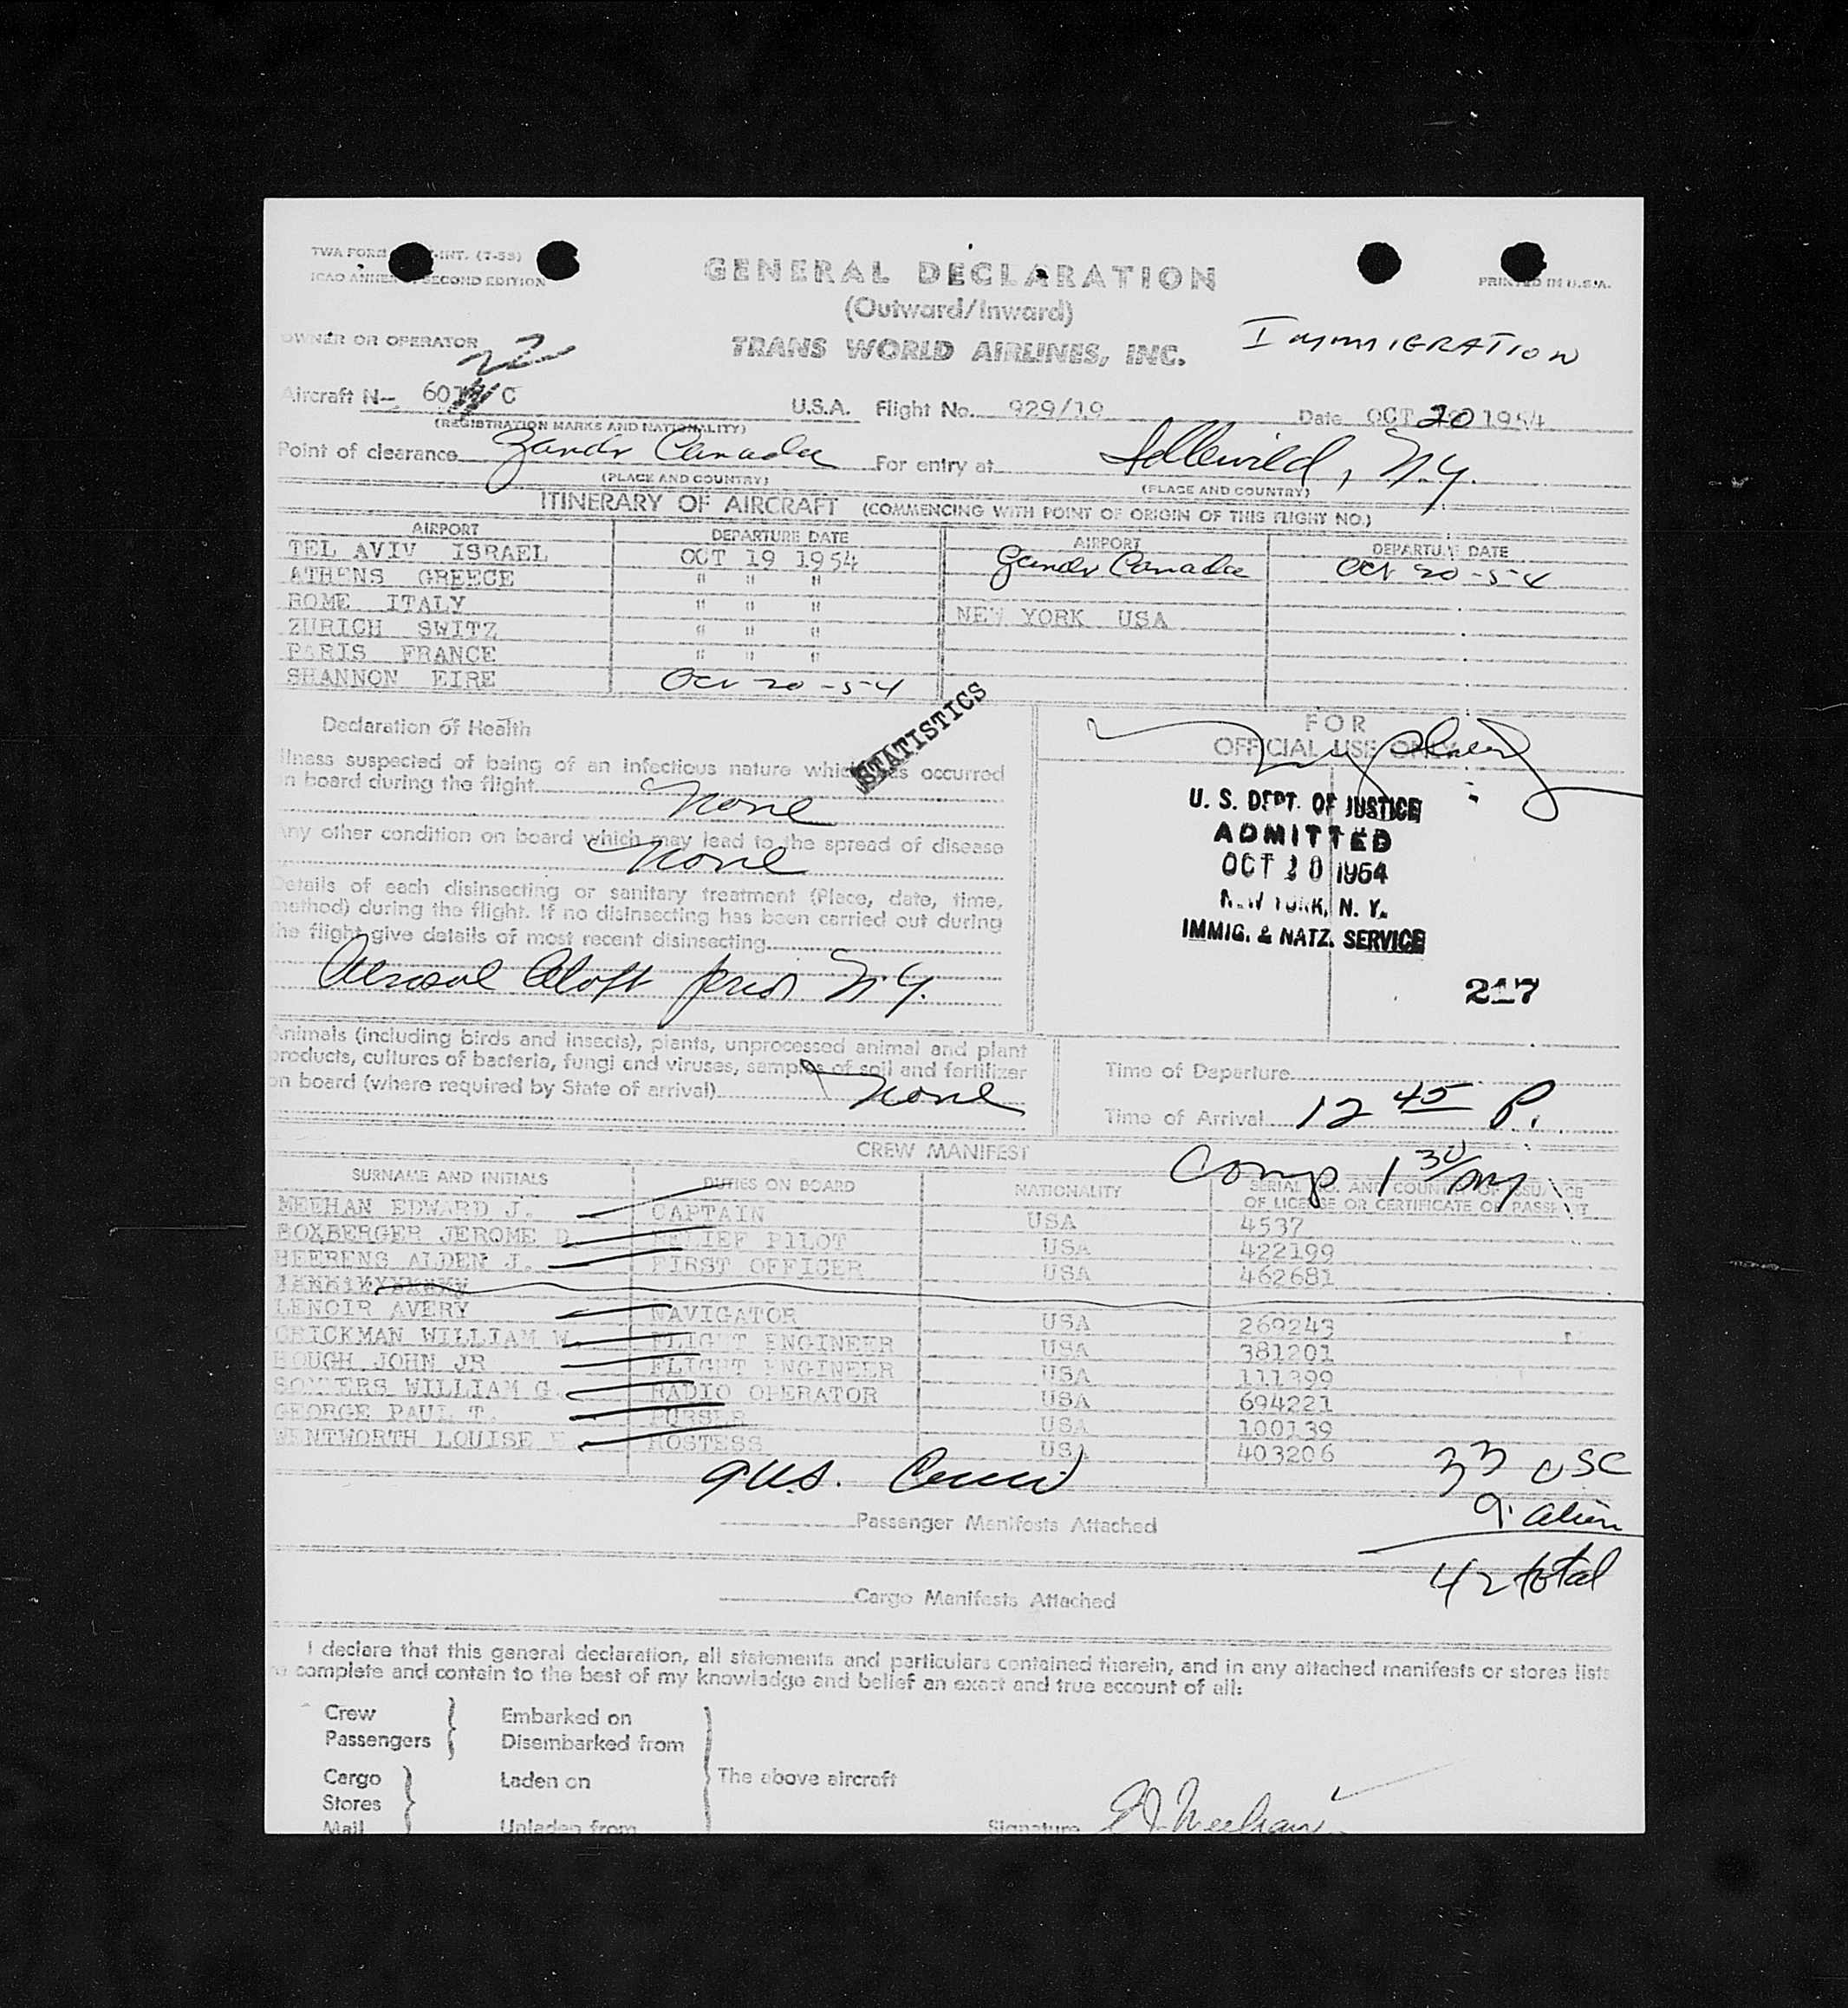 TWA FORM -INT. (7-53)
ICAO ANNEX SECOND EDITION
PRINTED IN U.S.A.
GENERAL DECLARATION
(Outward/Inward)
OWNER OR OPERATOR
TRANS WORLD AIRLINES, INC.
IMMIGRATION
22
Aircraft N- 60 C U.S.A. Flight No. 929/19 Date OCT 20 1954
(REGISTRATION MARKS AND NATIONALITY)
Point of clearance Gander Canada For entry at Idlewild, N.Y.
(PLACE AND COUNTRY) (PLACE AND COUNTRY)
ITINERARY OF AIRCRAFT (COMMENCING WITH POINT OF ORIGIN OF THIS FLIGHT NO.)
AIRPORT DEPARTURE DATE AIRPORT DEPARTURE DATE
TEL AVIV ISRAEL OCT 19 1954 Gander Canada Oct 20-54
ATHENS GREECE " " "
ROME ITALY " " " NEW YORK USA
ZURICH SWITZ " " "
PARIS FRANCE " " "
SHANNON EIRE Oct 20-54
STATISTICS
Declaration of Health
Illness suspected of being of an infectious nature which has occurred
on board during the flight None
Any other condition on board which may lead to the spread of disease
None
Details of each disinsecting or sanitary treatment (Place, date, time,
method) during the flight. If no disinsecting has been carried out during
the flight give details of most recent disinsecting
Aerosol Aloft prior N.Y.
FOR
OFFICIAL USE ONLY
U. S. DEPT. OF JUSTICE
ADMITTED
OCT 20 1954
NEW YORK, N. Y.
IMMIG. & NATZ. SERVICE
217
Animals (including birds and insects), plants, unprocessed animal and plant
products, cultures of bacteria, fungi and viruses, samples of soil and fertilizer
on board (where required by State of arrival) None
Time of Departure
Time of Arrival 12 45 P.
Comp 1 30/pm
CREW MANIFEST
SURNAME AND INITIALS DUTIES ON BOARD NATIONALITY SERIAL NO. AND COUNTRY OF ISSUANCE
OF LICENSE OR CERTIFICATE OR PASSPORT
MEEHAN EDWARD J. CAPTAIN USA 4537
BOXBERGER JEROME D. RELIEF PILOT USA 422199
BEERENS ALDEN J. FIRST OFFICER USA 462681
LENOIR AVERY NAVIGATOR USA 269243
CRICKMAN WILLIAM W. FLIGHT ENGINEER USA 381201
HOUGH JOHN JR FLIGHT ENGINEER USA 111399
SOMMERS WILLIAM G. RADIO OPERATOR USA 694221
GEORGE PAUL T. PURSER USA 100139
WENTWORTH LOUISE HOSTESS USA 403206
9 U.S. Crew
33 USC
9 alien
42 total
Passenger Manifests Attached
Cargo Manifests Attached
I declare that this general declaration, all statements and particulars contained therein, and in any attached manifests or stores lists
complete and contain to the best of my knowledge and belief an exact and true account of all:
Crew Embarked on
Passengers Disembarked from
Cargo Laden on The above aircraft
Stores
Mail Unladen from
Signature E J Meehan